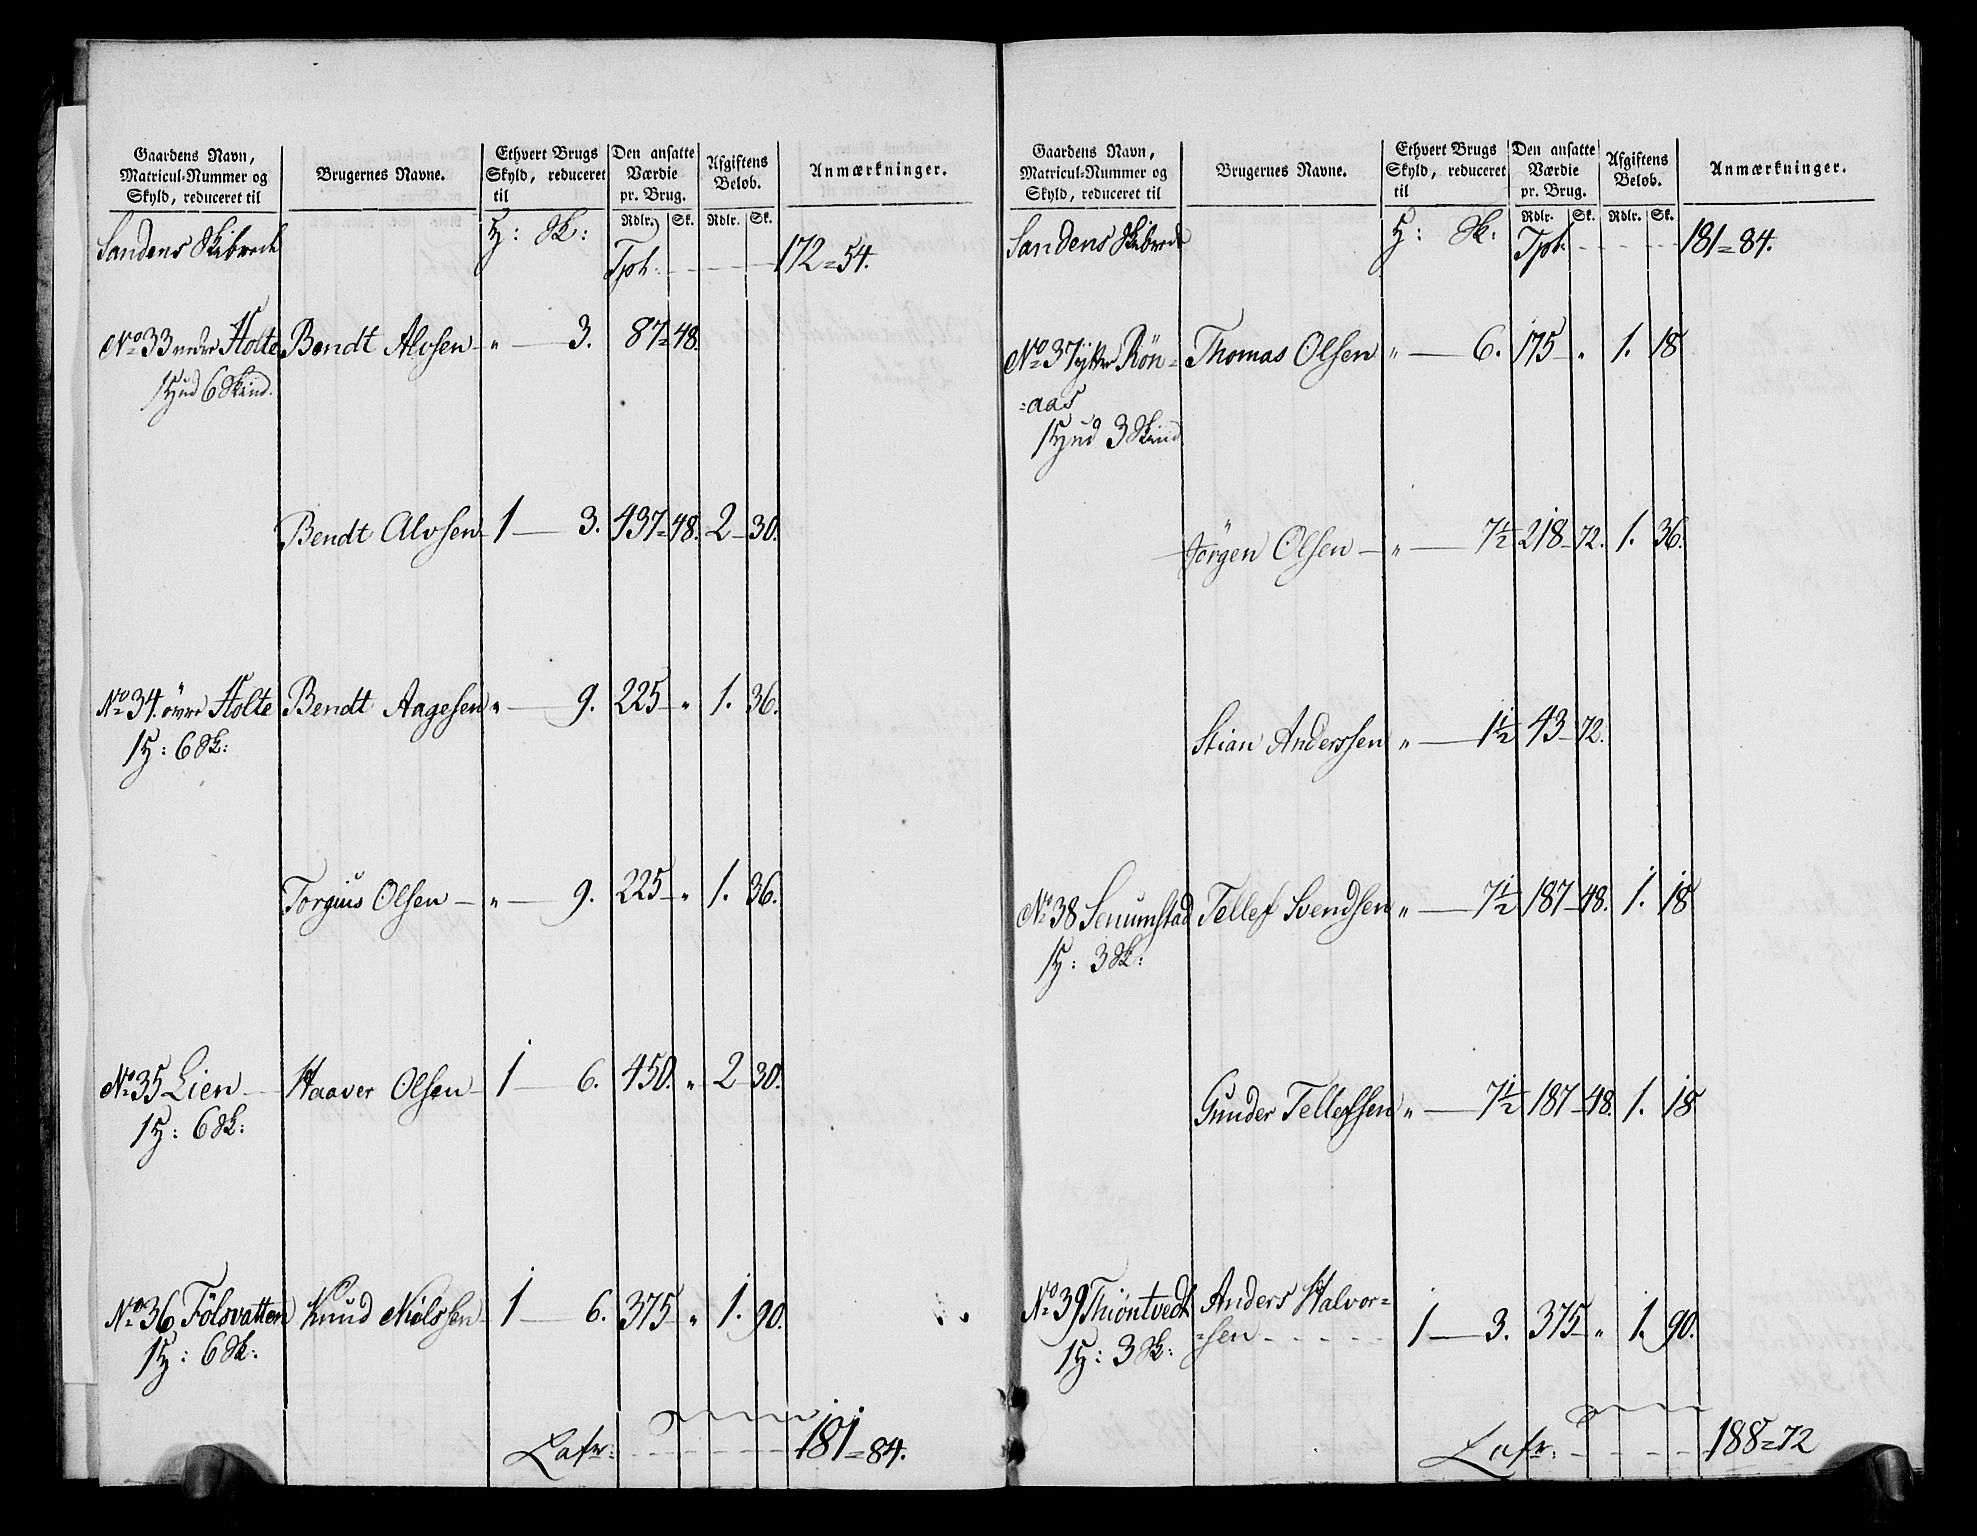 Gaardens Navn,
Matricul-Nummer og
Skyld, reduceret til
Brugernes Navne.
Ethvert Brugs
Skyld, reduceret
til
Den ansatte
Værdie
pr. Brug.
Afgiftens
Beløb.
Anmærkninger.
Rdlr. Sk. Rdlr. Sk.
Sandens Skibrede H: Sk: Tpt: 172=54.
No 33 nedre Holte Bendt Alvsen - " - 3. 87=48.
1 Hud 6 Skind.
Bendt Alvsen - 1 - 3. 437=48. 2 - 30.
No 34. øvre Holte Bendt Aagesen " - 9. 225 - " 1. 36.
1 H: 6 Sk:
Torgius Olsen - " - 9. 225 - " 1. 36.
No 35 Lien Haaver Olsen - 1 - 6. 450. " 2 - 30.
1 H: 6 Sk:
No 36 Fölsvatten Knud Nielssen - 1 - 6. 375 - " 1. 90.
1 H: 6 Sk:
Lafr: 181=84.
Gaardens Navn,
Matricul-Nummer og
Skyld, reduceret til
Brugernes Navne.
Ethvert Brugs
Skyld, reduceret
til
Den ansatte
Værdie
pr. Brug.
Afgiftens
Beløb.
Anmærkninger.
Rdlr. Sk. Rdlr. Sk.
Sandens Skibrede H: Sk: Tpt: 181=84.
No 37 ytre Rön= Thomas Olsen " - 6. 175 - " 1. 18
=aas
1 Hud 3 Skind
Jörgen Olsen - " - 7½ 218 - 72. 1. 36.
Stian Anderssen " - 1½ 43 - 72.
No 38 Senumstad Tellef Svendsen " - 7½ 187 - 48. 1. 18
1 H: 3 Sk:
Gunder Tellefsen " - 7½ 187 - 48. 1. 18
No 39 Thiöntvedt Anders Halvor=
=sen 1 - 3. 375 - " 1. 90.
1 H: 3 Sk:
Lafr: 188=72